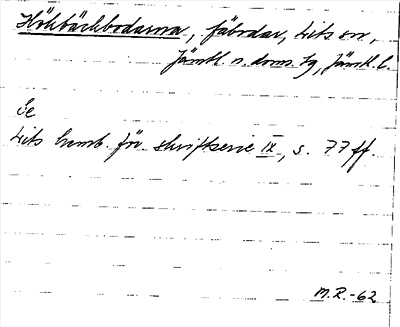 Hökbäckbodarna, fäbodar, Lits sn,
Jämtl. n. doms. tg, Jämtl. l.
Se
Lits hemb. för. skriftserie IX, s. 77 ff.
M.R.-62